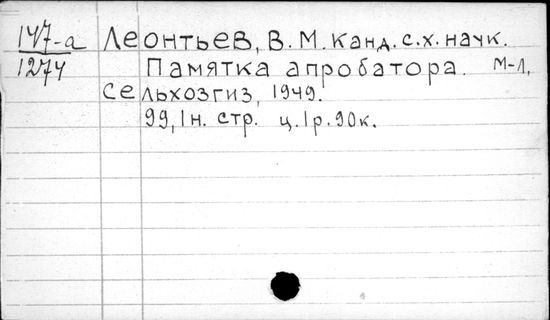 147-а Леонтьев, В. М. канд. с.х. наук.
1274 Памятка апробатора. М-Л,
Сельхозгиз, 1949.
99, 1н. стр. ц. 1р. 90к.